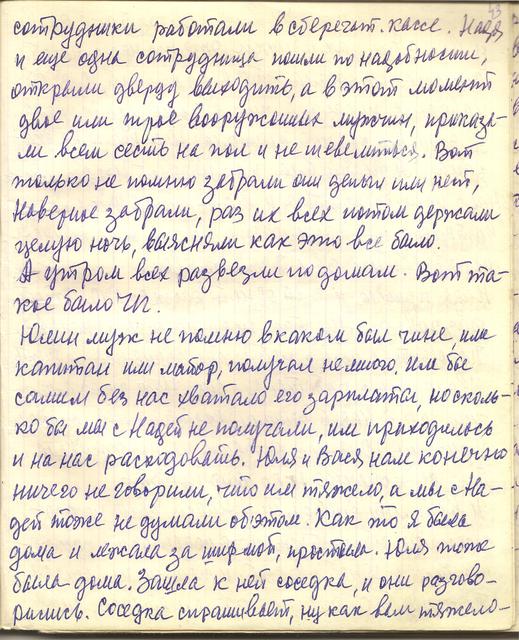 43
сотрудники работали в сберегат. кассе. Надя,
и еще одна сотрудница пошли по надобности,
открыли дверду выходить, а в этот момент
двое или трое вооружонных мужчин, приказа-
ли всем сесть на пол и не шевелиться. Вот
только не помню забрали они деньги или нет,
Наверное забрали, раз их всех потом держали
целую ночь, выясняли как это все было.
А утром всех развезли по домам. Вот та-
кое было ЧП.
Юлин муж не помню в каком был чине, или
капитан или майор, получал немного. Им бы
самим без нас хватало его зарплаты, но сколь-
ко бы мы с Надей не получали, им приходилось
и на нас расходовать. Юля и Вася нам конечно
ничего не говорили, что им тяжело, а мы с На-
дей тоже не думали об этом. Как то я была
дома и лежала за ширмой, простыла. Юля тоже
была дома. Зашла к ней соседка, и они разгово-
рились. Соседка спрашивает, ну как вам тяжело-